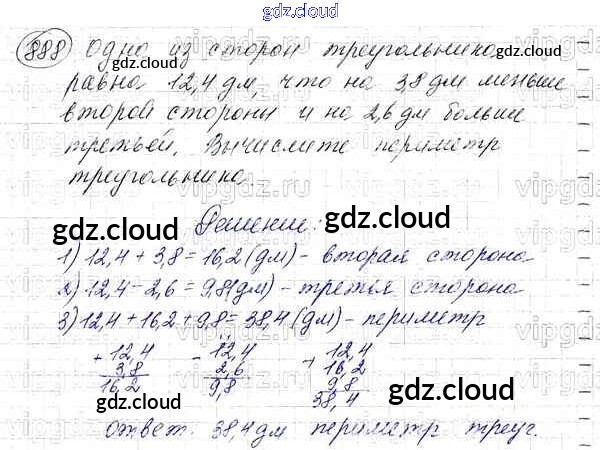 gdz.cloud
gdz.cloud gdz.cloud
888 Одна из сторон треугольника
равна 12,4 дм, что на 3,8 дм меньше
второй стороны и на 2,6 дм больше
третьей. Вычислите периметр
треугольника.
Решение:
gdz.cloud gdz.cloud
1) 12,4 + 3,8 = 16,2 (дм) - вторая сторона
2) 12,4 - 2,6 = 9,8 (дм) - третья сторона
3) 12,4 + 16,2 + 9,8 = 38,4 (дм) - периметр
+ 12,4 - 12,4 + 12,4
3,8 2,6 16,2
16,2 9,8 9,8
38,4
gdz.cloud gdz.cloud
Ответ: 38,4 дм периметр треуг.
gdz.cloud